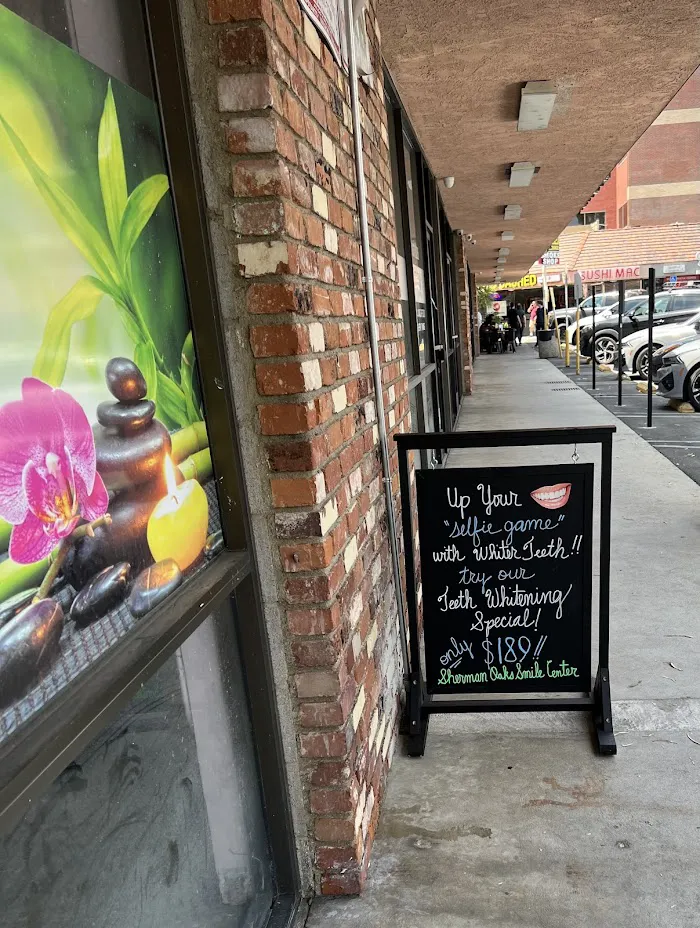 Up Your
"selfie game"
with Whiter Teeth!!
try our
Teeth Whitening
Special!
only $189!!
Sherman Oaks Smile Center
SUSHI MAC